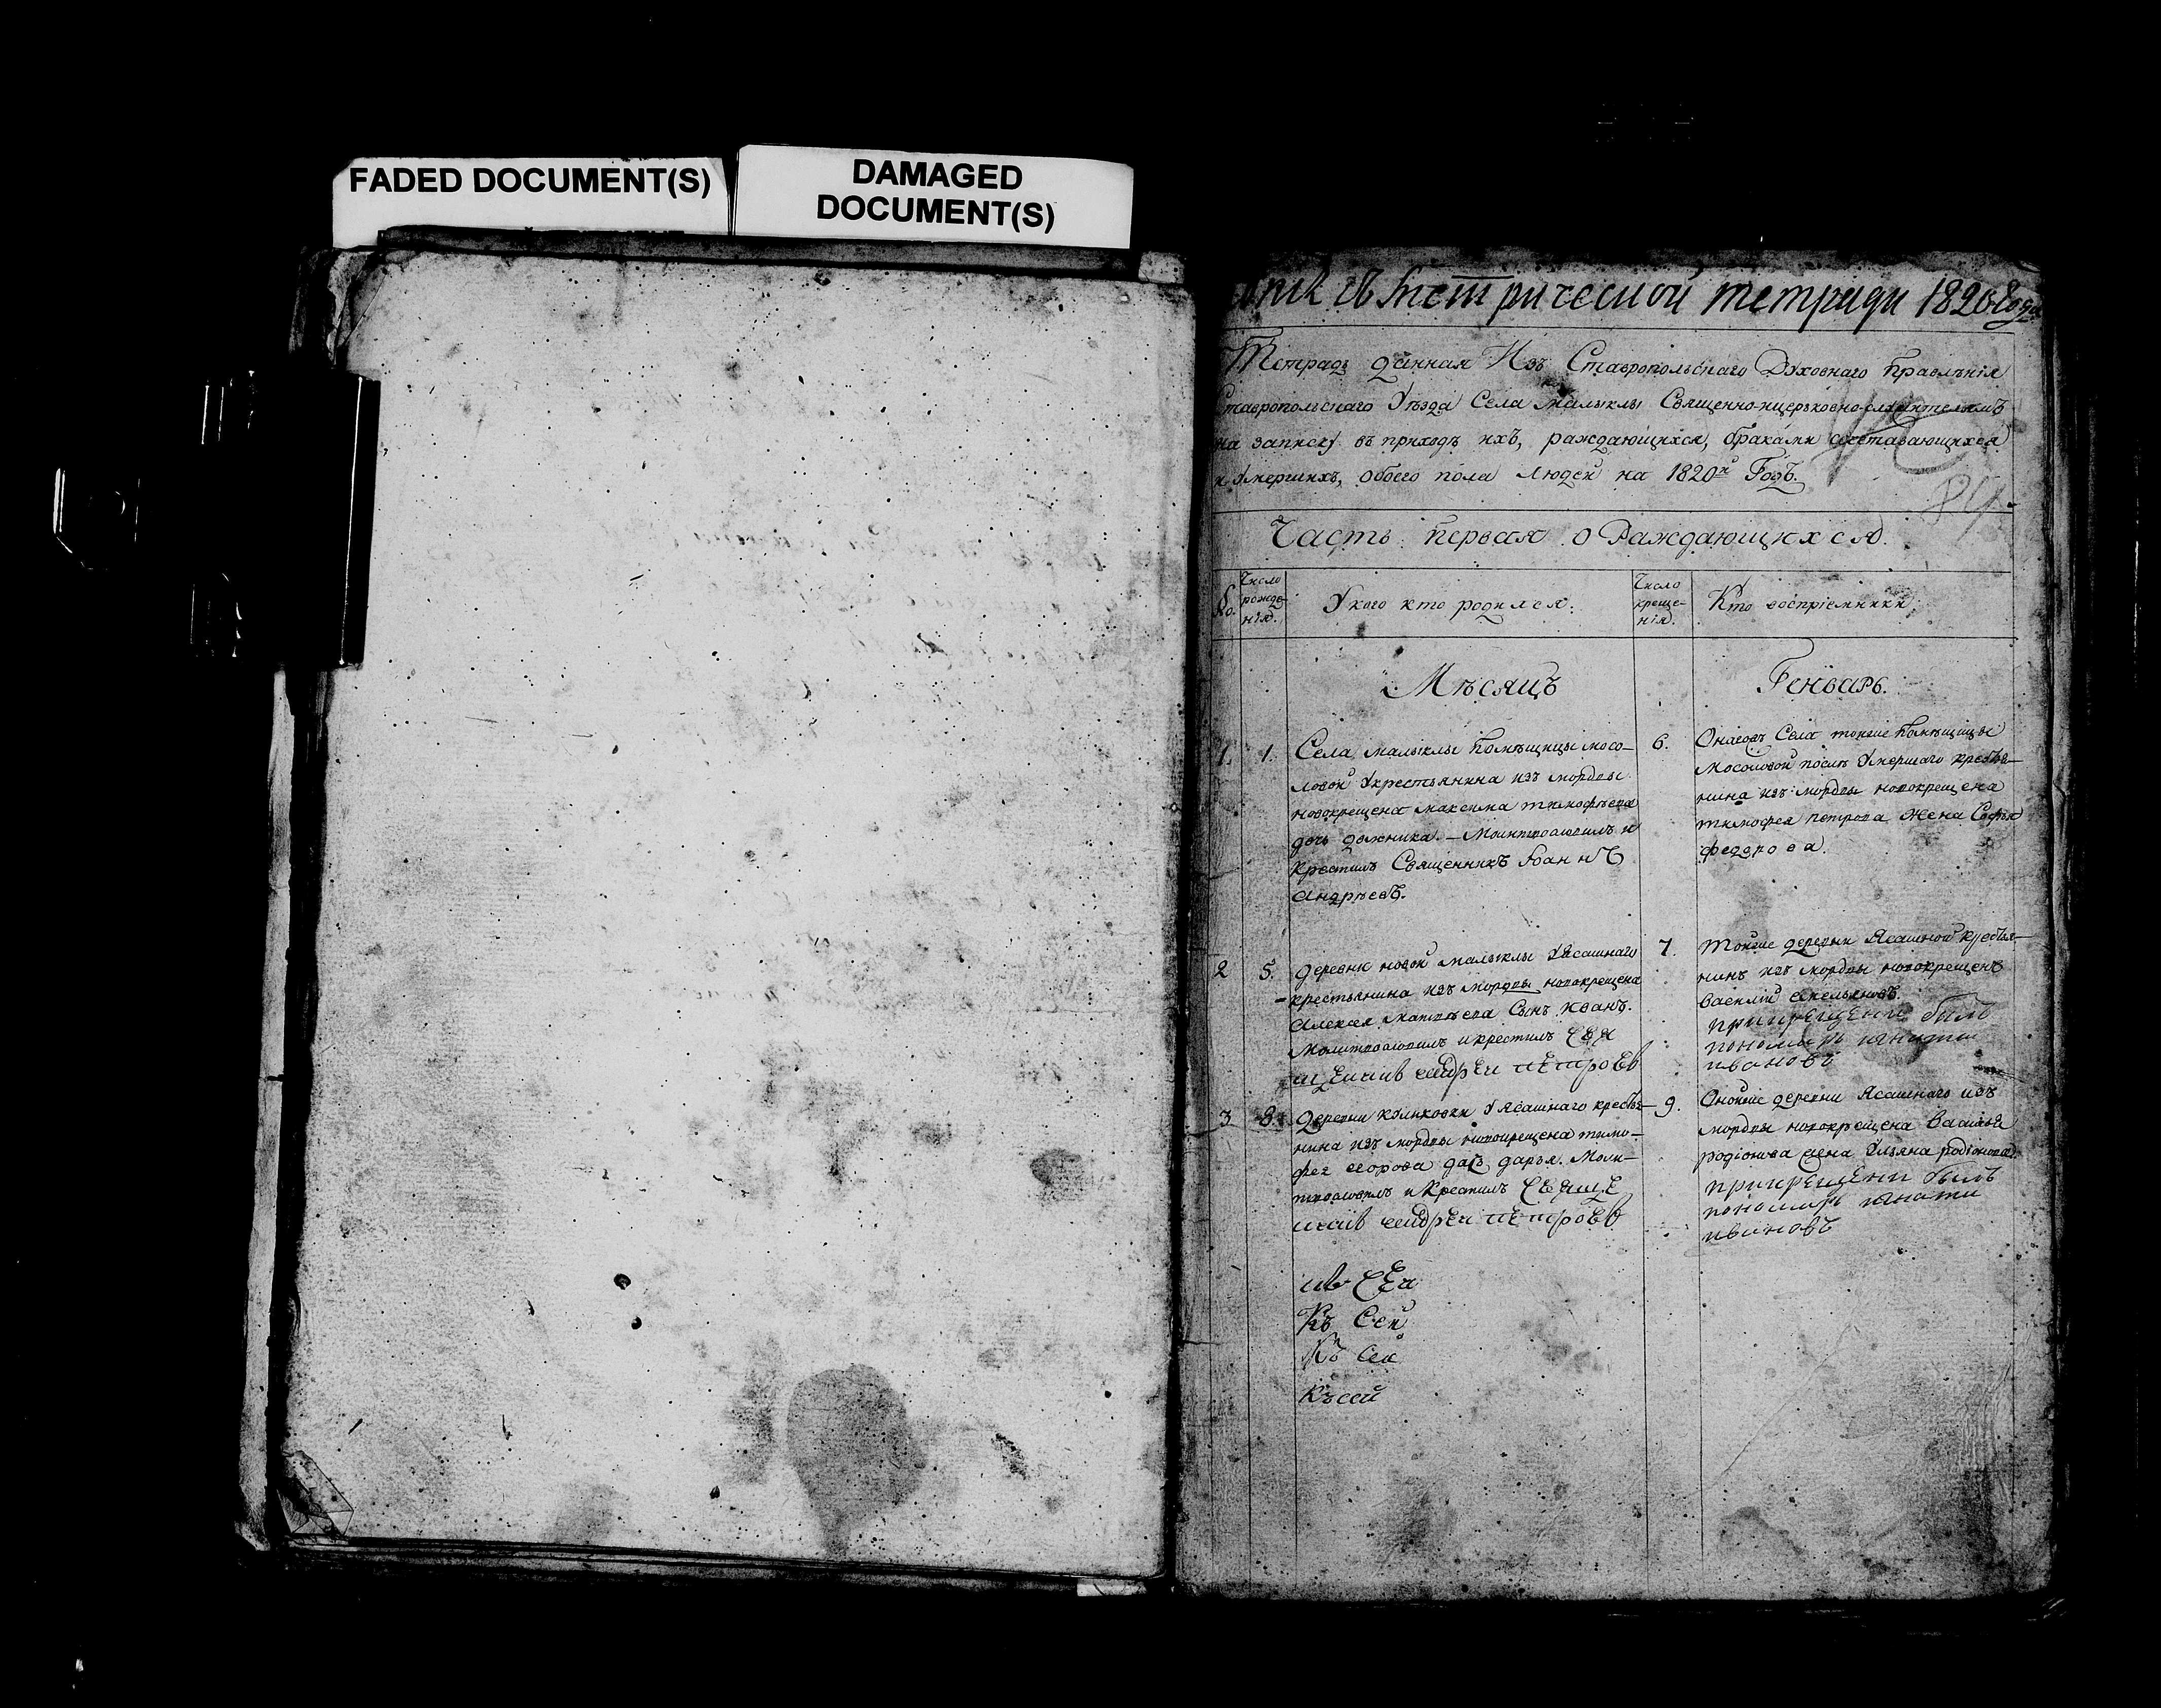 FADED DOCUMENT(S)
DAMAGED
DOCUMENT(S)
тетради 1820 Года
Тетрадь данная Изъ Ставропольскаго Духовнаго Правлѣнія
Ставропольскаго Уѣзда Села малыклы Священно-ицерьковно-служителямъ
на записку въ приходѣ ихъ, раждающихся, браками
и Умершихъ, обоего пола людей на 1820й Годъ.
Часть первая о Раждающихся
№. Число рожде-нія. У кого кто родился. Число креще-нія. Кто воспріемники.
Мѣсяцъ Генварь.
1. 1. Села малыклы Помѣщицы мосо-
ловой Укрестьянина изъ мордвы
новокрещена максима тимофѣева
дочь домника. – Молитвословилъ и
крестилъ Священникъ Іоаннъ
Андрѣевъ.
6. Села тойже Помѣщицы
Мосоловой послѣ Умершаго крестья-
нина изъ мордвы новокрещена
тимофея петрова Жена Софья
федорова.
2 5. деревни новой малыклы Уясашнаго
крестьянина изъ мордвы новокрещена
Алексея матвѣева Сынъ Иванъ.
Молитвословилъ икрестилъ Свя
щенникъ андрей петровъ
7. тойже деревни Ясашной крестья-
нинъ изъ мордвы новокрещенъ
Василій Емельяновъ.
прикрещени былъ
пономарь игнатии
ивановъ
3 8. деревни кулиховки Уясашнаго крестья-
нина изъ мордвы новокрещена тимо-
фея егорова дочь дарья. Моли-
твословилъ и Крестилъ Священ
никъ андрей петровъ
9. Онойже деревни Ясашнаго изъ
мордвы новокрещена Василья
родіонова жена Ульяна родіонова.
прикрещени былъ
пономарь игнати
ивановъ
Къ Сей
Къ Сей
Къ сей